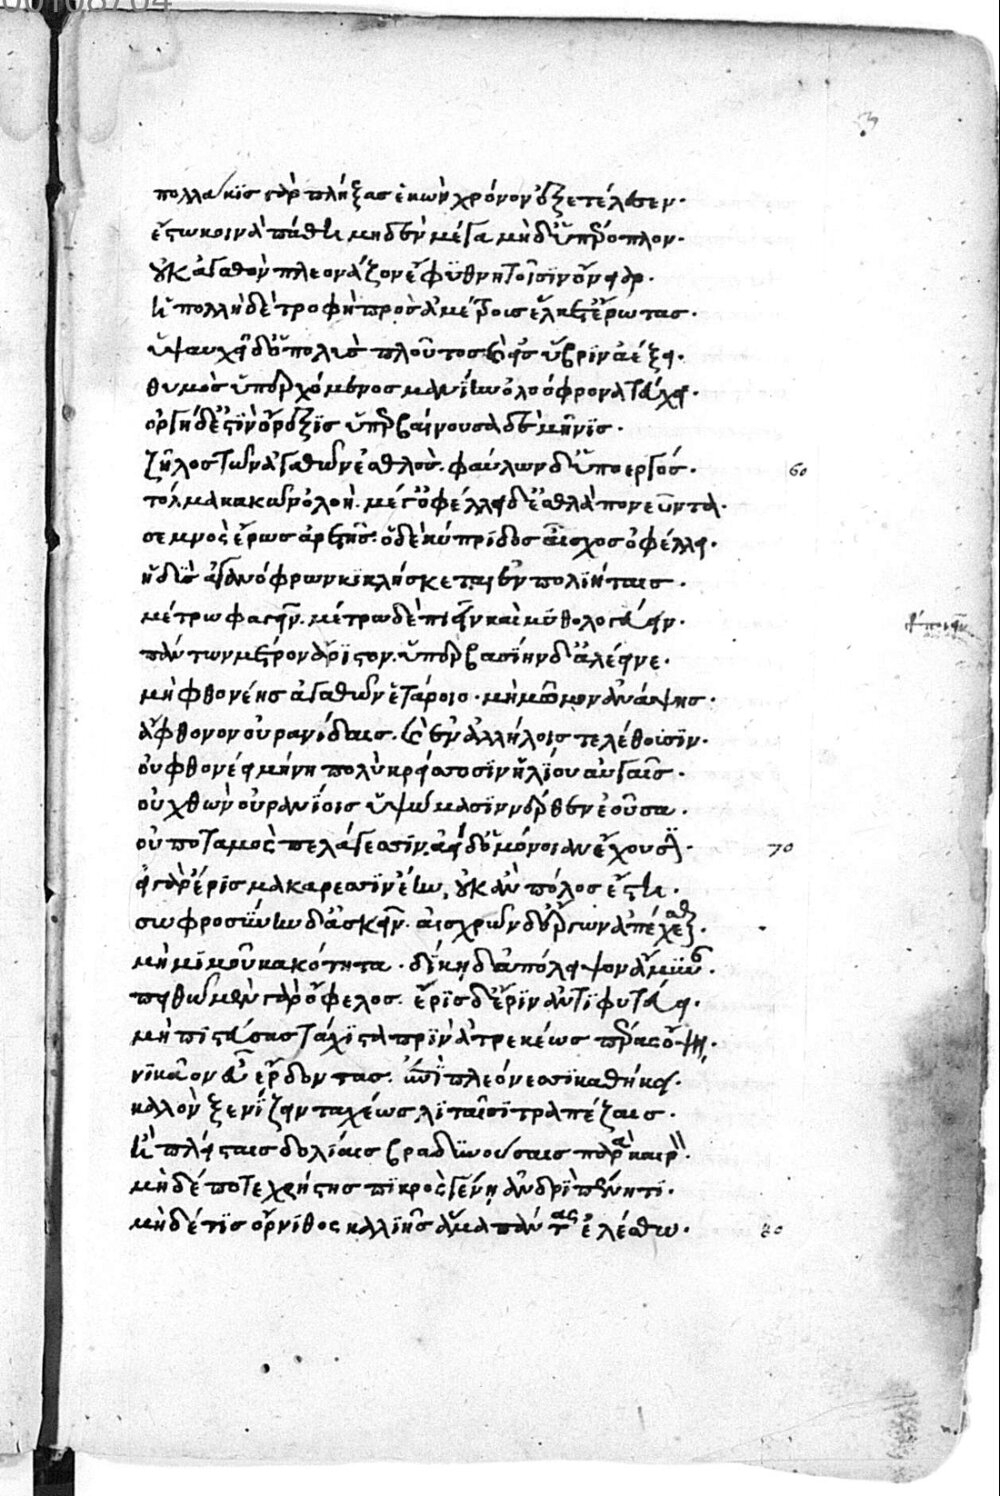 00108704
3
πολλακϊς γὰρ πλήξας ἑκὼν χρόνον ἐξετέλεσεν·
ἔςω κοινὰ πάθη· μηδὲν μέγα μηδ' ὑπέροπλον·
οὐκ ἀγαθὸν πλεονάζον ἔφϋ θνητοῖσϊν ὄνειαρ·
ἡ πολλὴ δὲ τροφὴ πρὸς ἀμέτροις ἕλκετ' ἔρωτας·
ὑψαυχεῖ δ' ὁ πολὺς πλοῦτος καὶ ἐς ὕβρϊν ἀέξει·
θυμὸς ὑπερχόμενος μανίην ὀλοόφρονα τεύχει·
ὀργὴ δ' ἐςϊν ὄρεξϊς ὑπερβαίνουσα δὲ μῆνϊς·
ζῆλος τῶν ἀγαθῶν ἐσθλὸς· φαύλων δ' ὑποεργός· 60
τόλμα κακῶν ὀλοή· μέγ' ὀφέλλει δ' ἐσθλὰ πονεῦντα·
σεμνὸς ἔρως ἀρετῆς· ὁ δὲ κύπριδος αἶσχος ὀφέλλει·
ἡδὺς ἀγανόφρων κϊκλήσκεται ἐν πολϊήταις·
μέτρω φαγεῖν· μέτρω δὲ πιεῖν καὶ μυθολογεύειν·
πάντων μέτρον ἄρϊςον· ὑπερβασϊην δ' ἀλέεινε·
μὴ φθονέης ἀγαθῶν ἑτάροις· μὴ μῶμον ἀνάψης·
ἄφθονοι οὐρανίδαις· καὶ ἐν ἀλλήλοις τελέθοισϊν·
οὐ φθονέει μήνη πολὺ κρείσσοσϊν ἡλϊου αὐγαῖς·
οὐ χθὼν οὐρανϊοις ὑψώμασϊν νέρθεν ἐοῦσα·
οὐ ποταμὸς πελάγεσσϊν· ἀεὶ δ' ὁμόνοιαν ἔχουσϊν· 70
εἰ γὰρ ἔρϊς μακάρεσσϊν ἔην, οὐκ ἂν πόλος ἔςη·
σωφροσύνην δ' ἀσκεῖν· αἰσχρῶν δ' ἔργων ἀπέχεσθαι·
μὴ μϊμοῦ κακότητα· δίκη δ' ἀπόλειψον ἄμϋναν·
πειθὼ μὲν γὰρ ὄφελος· ἔρϊς δ' ἔρϊν ἀντϊφυτεύει·
μὴ πίςευε τάχϊςα πρϊν ἀτρεκέως πέρας ὄψη·
νϊκᾶν εὖ ἔρδοντας ἐπϊ πλεόνεσσϊ καθήκει·
καλὸν ξενΐζειν ταχέως λϊταῖσϊ τραπέζαις·
ἢ πλείςαις δολΐαις βραδϋνούσαις παρὰ καιρόν·
μηδέποτε χρήςης πϊκρὸς γένη ἀνδρϊ πένητϊ·
μηδέ τϊς ὄρνϊθος καλϊῆς ἅμα πάντας ἑλέσθω· 80